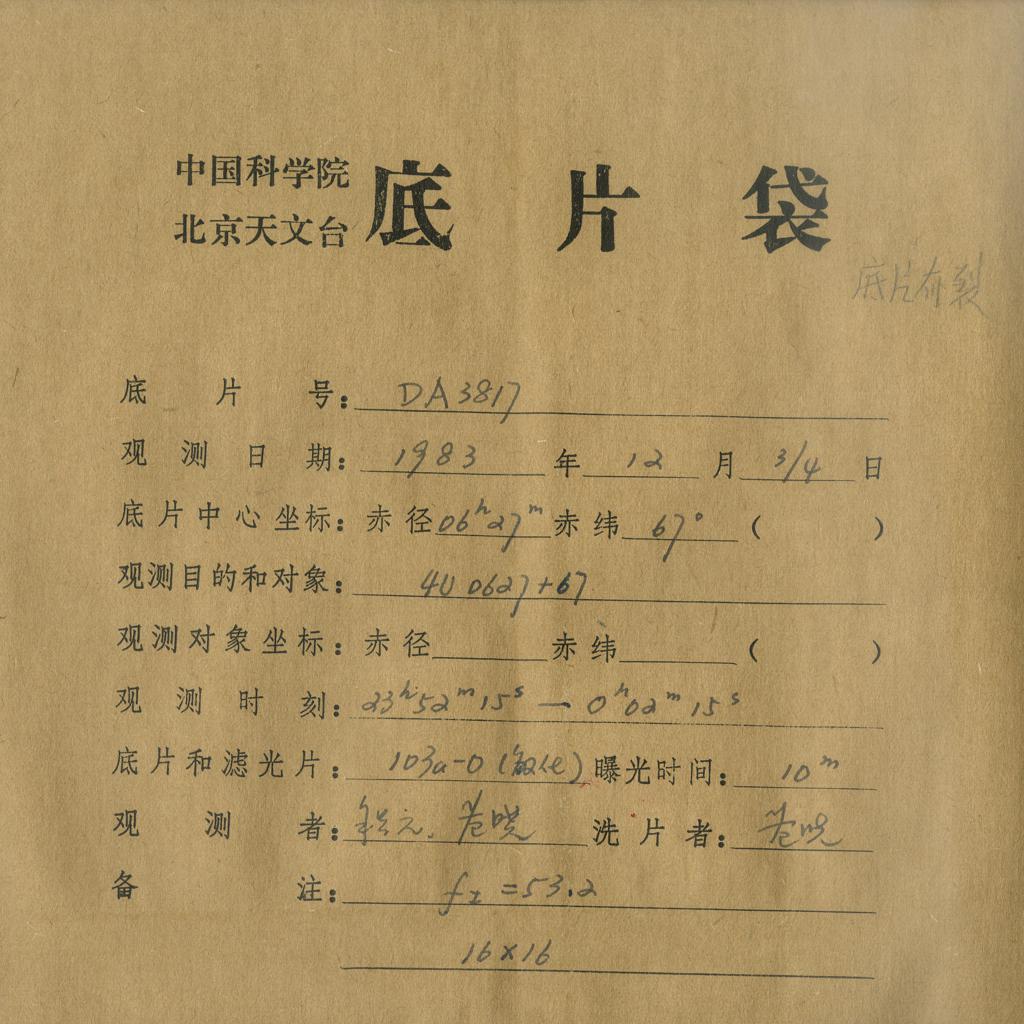 中国科学院
北京天文台
底片袋
底片有裂
底片号：DA3817
观测日期：1983年12月3/4日
底片中心坐标：赤径06ʰ27ᵐ赤纬67°（ ）
观测目的和对象：4U 0627+67
观测对象坐标：赤径 赤纬 （ ）
观测时刻：23ʰ52ᵐ15ˢ — 0ʰ02ᵐ15ˢ
底片和滤光片：103a-O（敏化）曝光时间：10ᵐ
观测者： 洗片者：
备注：f_I=53.2
16×16